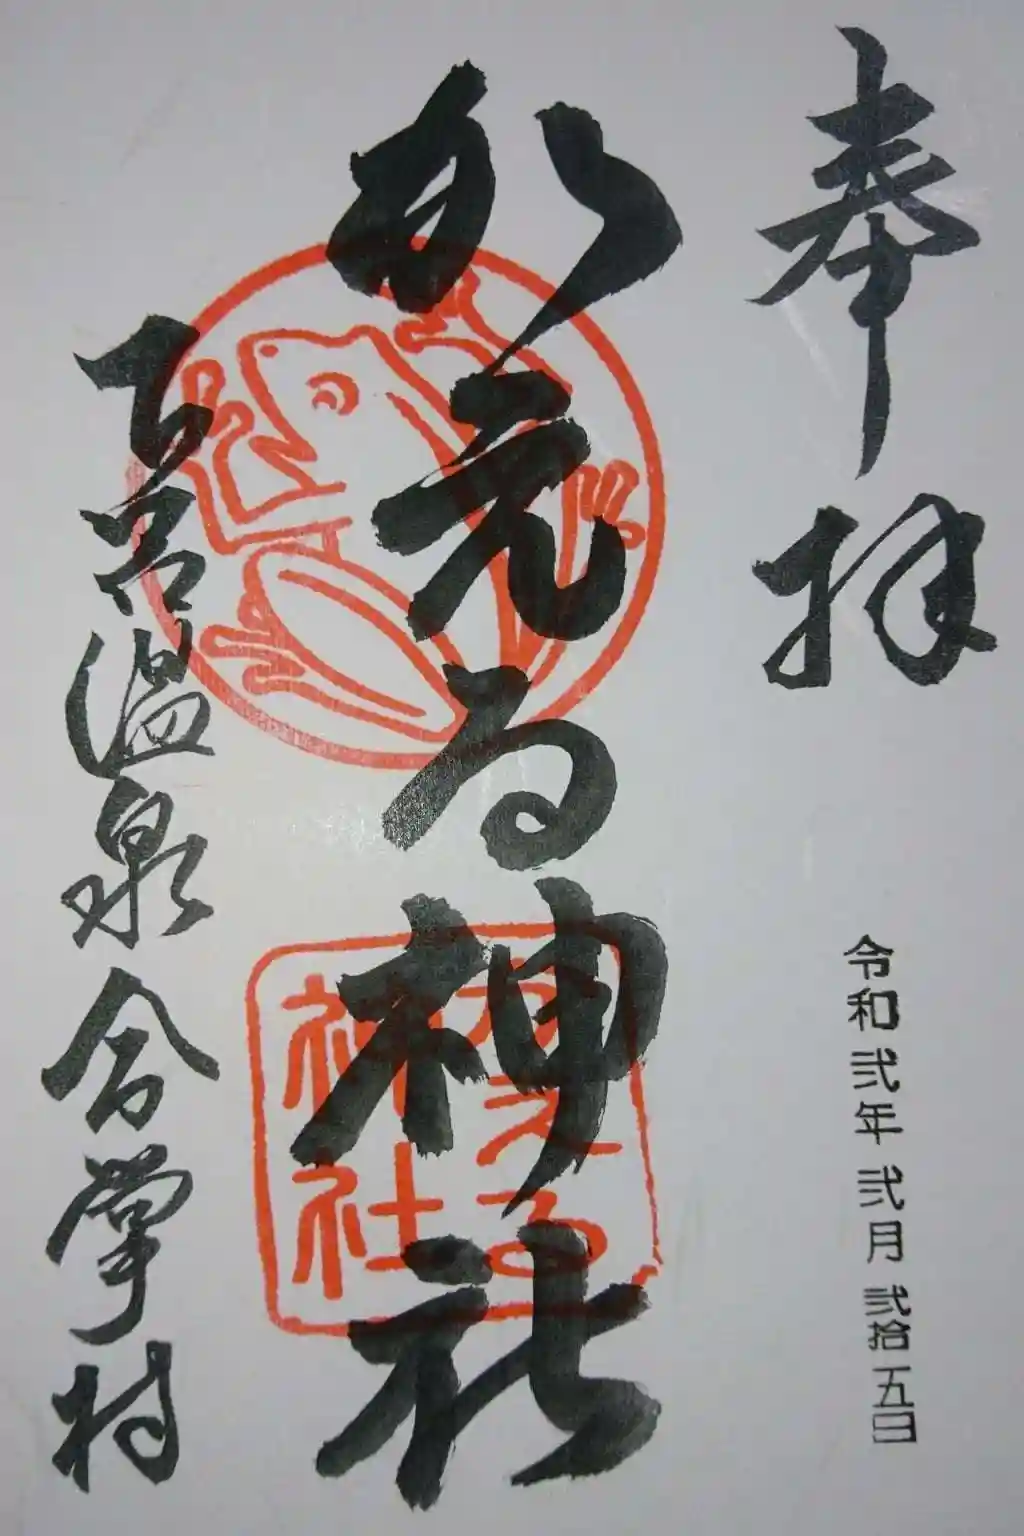 奉拝
令和弐年弐月弐拾五日
かえる神社
かえる
神社
下呂温泉合掌村